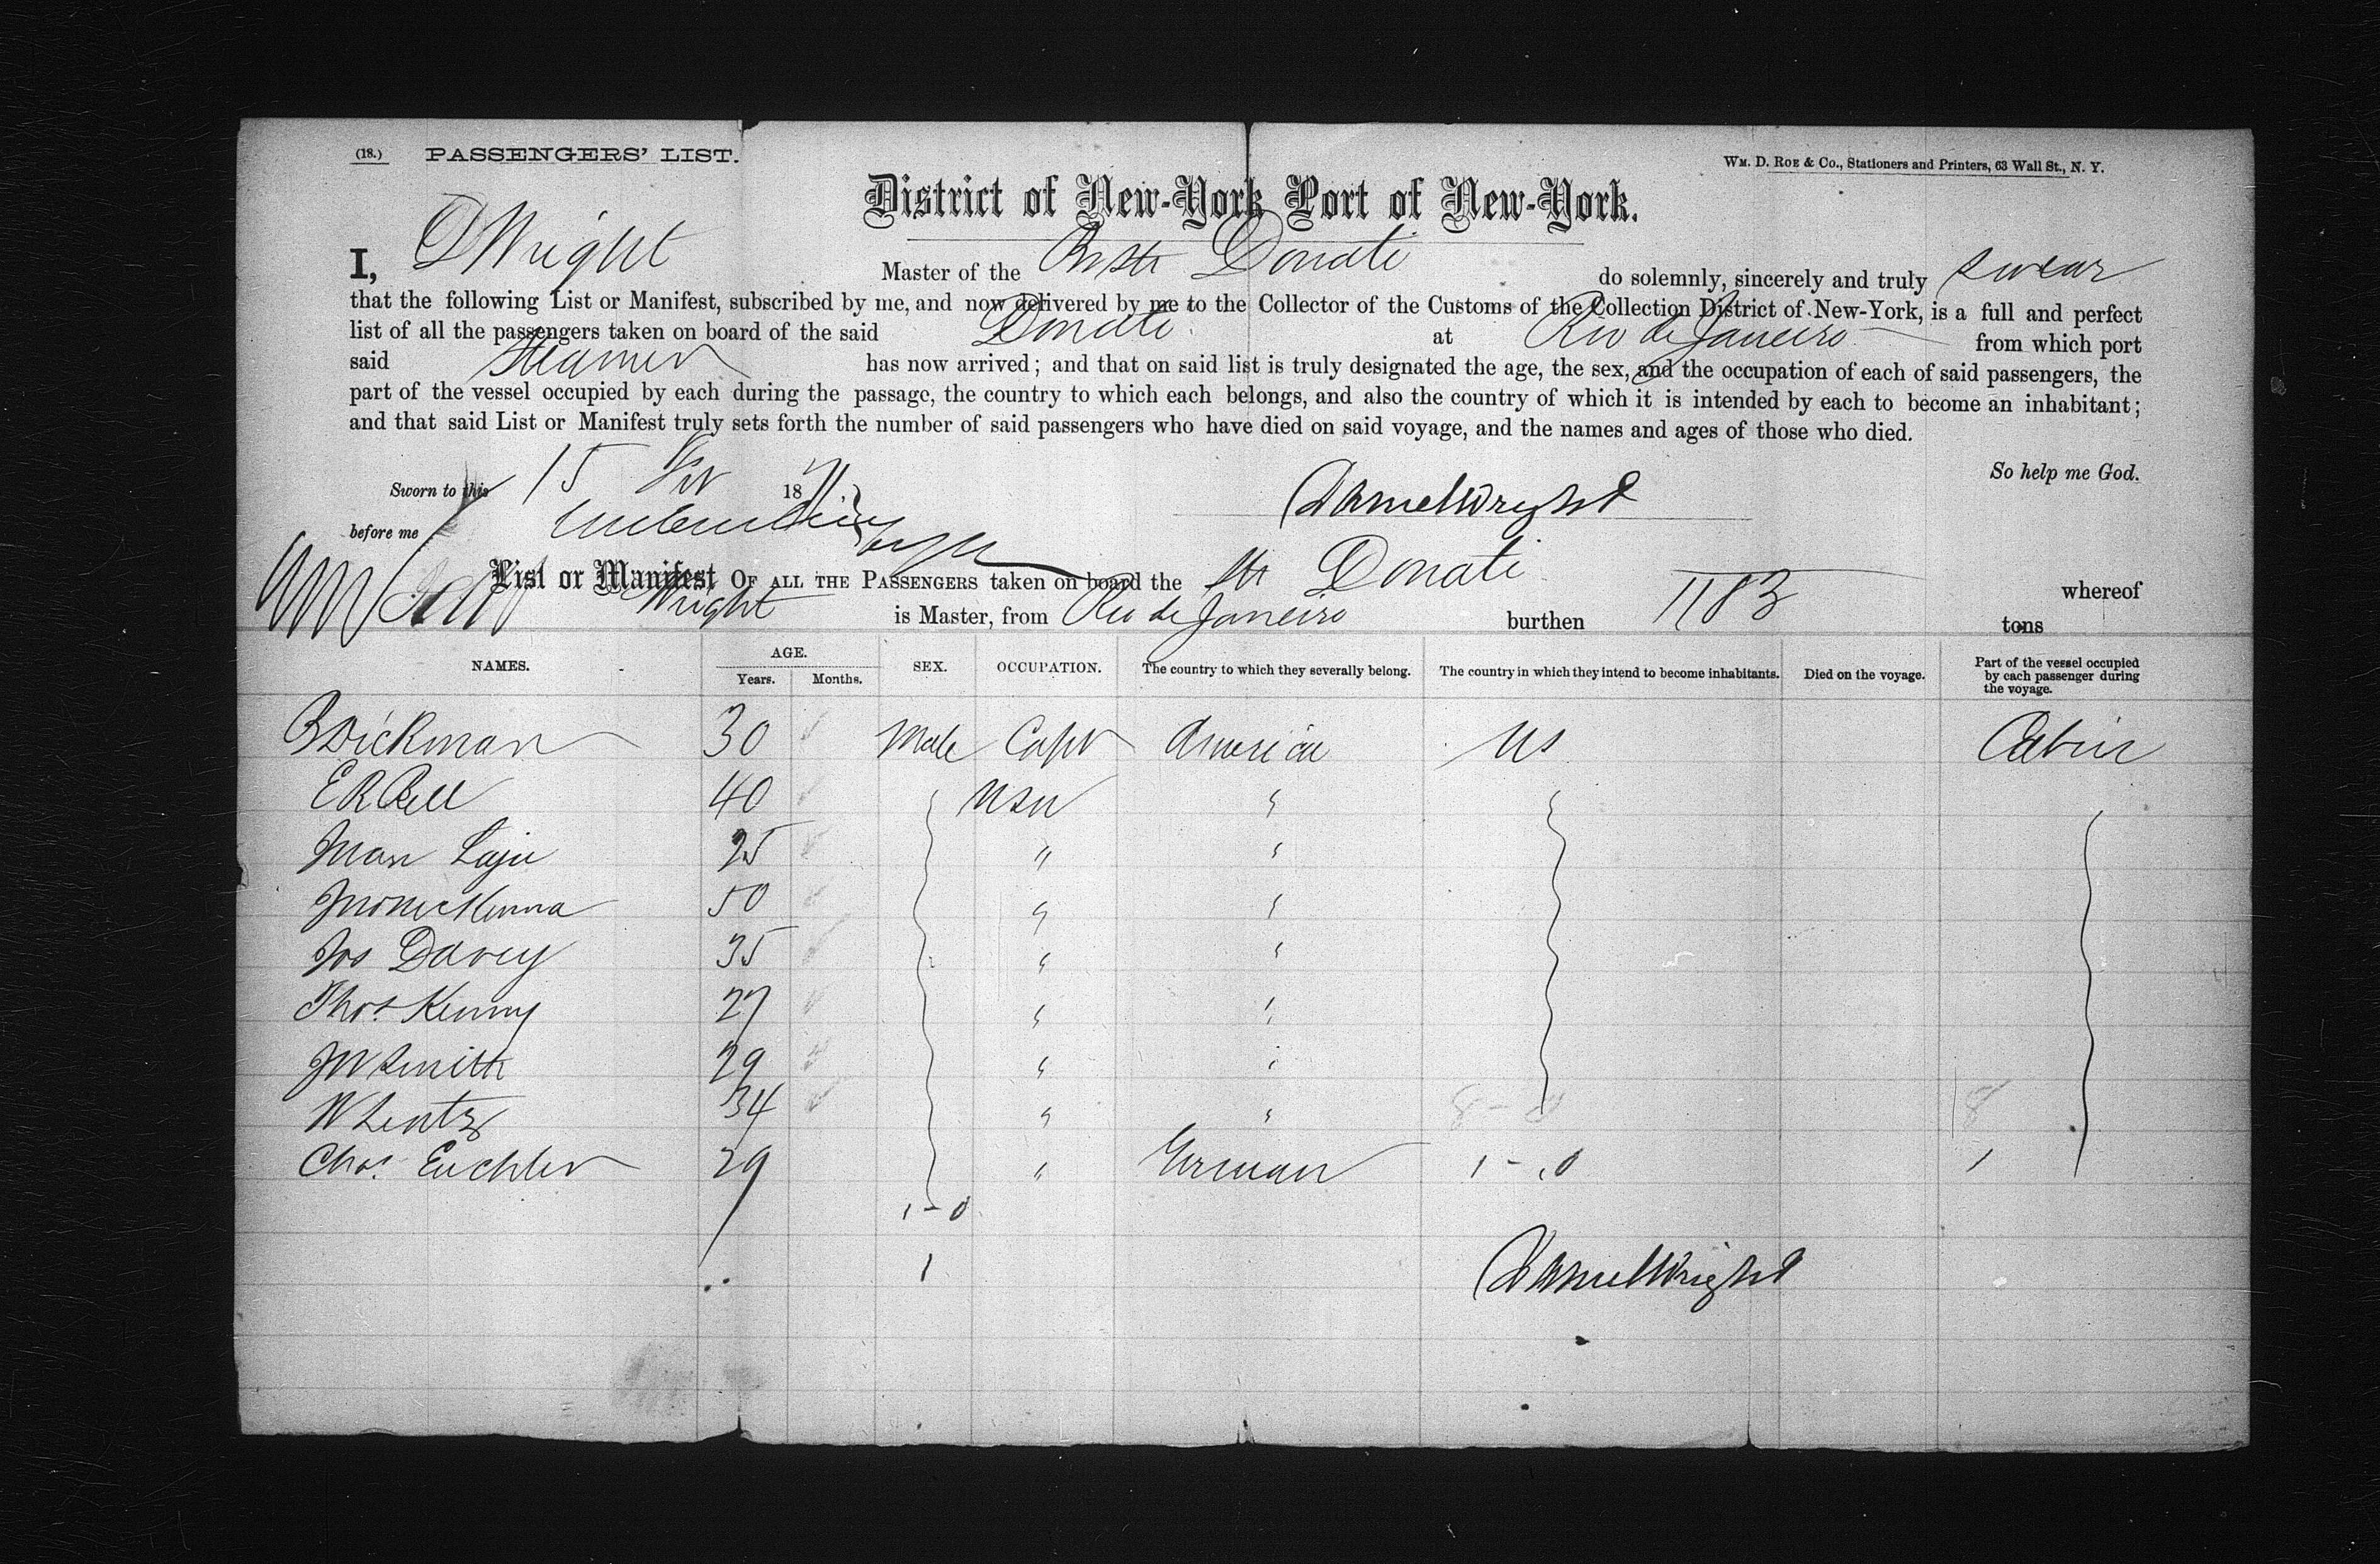 (18.) PASSENGERS' LIST.
Wm. D. Roe & Co., Stationers and Printers, 63 Wall St., N. Y.
District of New-York Port of New-York.
I, D Wright Master of the Br Str Donati do solemnly, sincerely and truly swear
that the following List or Manifest, subscribed by me, and now delivered by me to the Collector of the Customs of the Collection District of New-York, is a full and perfect
list of all the passengers taken on board of the said Donati at Rio de Janeiro from which port
said Steamer has now arrived; and that on said list is truly designated the age, the sex, and the occupation of each of said passengers, the
part of the vessel occupied by each during the passage, the country to which each belongs, and also the country of which it is intended by each to become an inhabitant;
and that said List or Manifest truly sets forth the number of said passengers who have died on said voyage, and the names and ages of those who died.
So help me God.
Sworn to this 15 18
Daniel Wright
before me
List or Manifest OF ALL THE PASSENGERS taken on board the Str Donati whereof
Wright is Master, from Rio de Janeiro burthen 1183 tons
NAMES. AGE. Years. Months. SEX. OCCUPATION. The country to which they severally belong. The country in which they intend to become inhabitants. Died on the voyage. Part of the vessel occupied by each passenger during the voyage.
B Dickman 30 Male Capt America US Cabin
E R Bell 40 USN "
25 " "
50 " "
Jos Davey 35 " "
Thos Kenny 27 " "
J W Smith 29 " "
W Lentz 34 " " 8 - 0 8
Chas. Euchler 29 " German 1 - 0 1
1 - 0
1
Daniel Wright